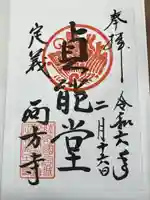 奉拝
令和六年
二月十六日
貞能堂
定義
西方寺